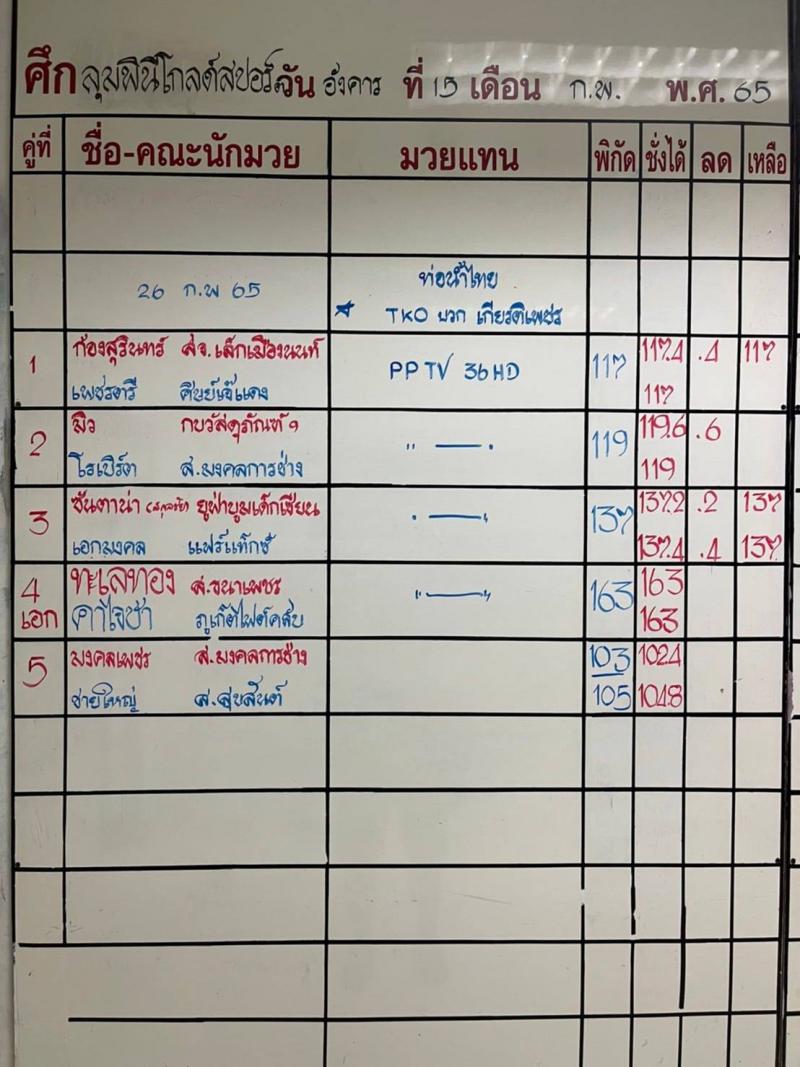 ศึก ลุมพินีโกลด์สปอร์ต วัน อังคาร ที่ 15 เดือน ก.พ. พ.ศ. 65
คู่ที่ ชื่อ-คณะนักมวย มวยแทน พิกัด ชั่งได้ ลด เหลือ
26 ก.พ 65 ท่อน้ำไทย
★ TKO บวก เกียรติเพชร
1 ก้องสุรินทร์ ส.จ.เล็กเมืองนนท์ PPTV 36HD 117 117.4 .4 117
เพชรตรี ศิษย์เจ๊แดง 117
2 มิว กบวัสดุภัณฑ์ฯ " — " 119 119.6 .6
โรเบิร์ต ส.มงคลการช่าง 119
3 ซันตาน่า ยูฟ่าบูมเด็กเซียน " — " 137 137.2 .2 137
เอกมงคล แฟร์แท็กซ์ 137.4 .4 137
4 ทะเลทอง ส.ธนาเพชร " — " 163 163
เอก คาไจซ่า ภูเก็ตไฟต์คลับ 163
5 มงคลเพชร ส.มงคลการช่าง 103 102.4
ชายใหญ่ ส.สุขสันต์ 105 104.8